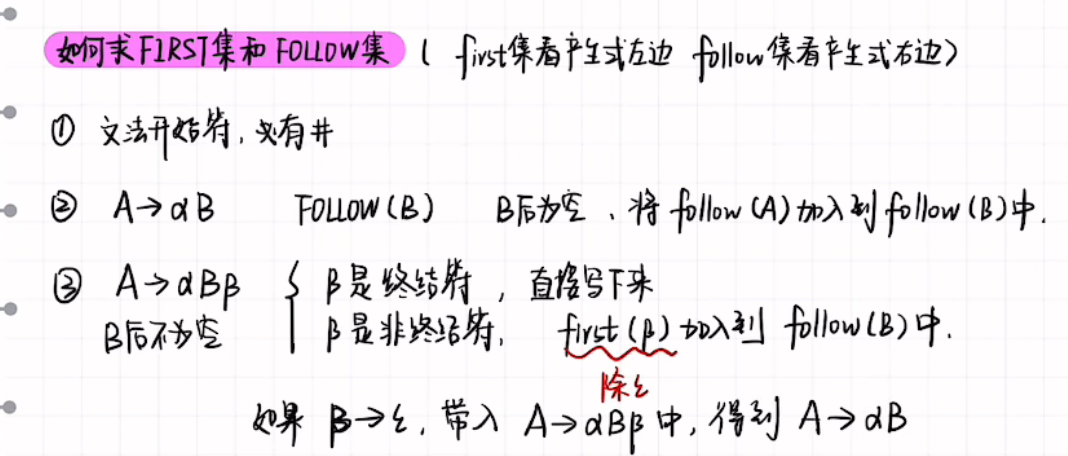 如何求FIRST集和FOLLOW集 ( first集看产生式左边 follow集看产生式右边)
① 文法开始符, 必有#
② A→αB FOLLOW(B) B后为空、将follow(A)加入到follow(B)中.
③ A→αBβ { β是终结符, 直接写下来
B后不为空 β是非终结符, first(β)加入到 follow(B)中.
除ε
如果 β→ε, 带入 A→αBβ中, 得到 A→αB